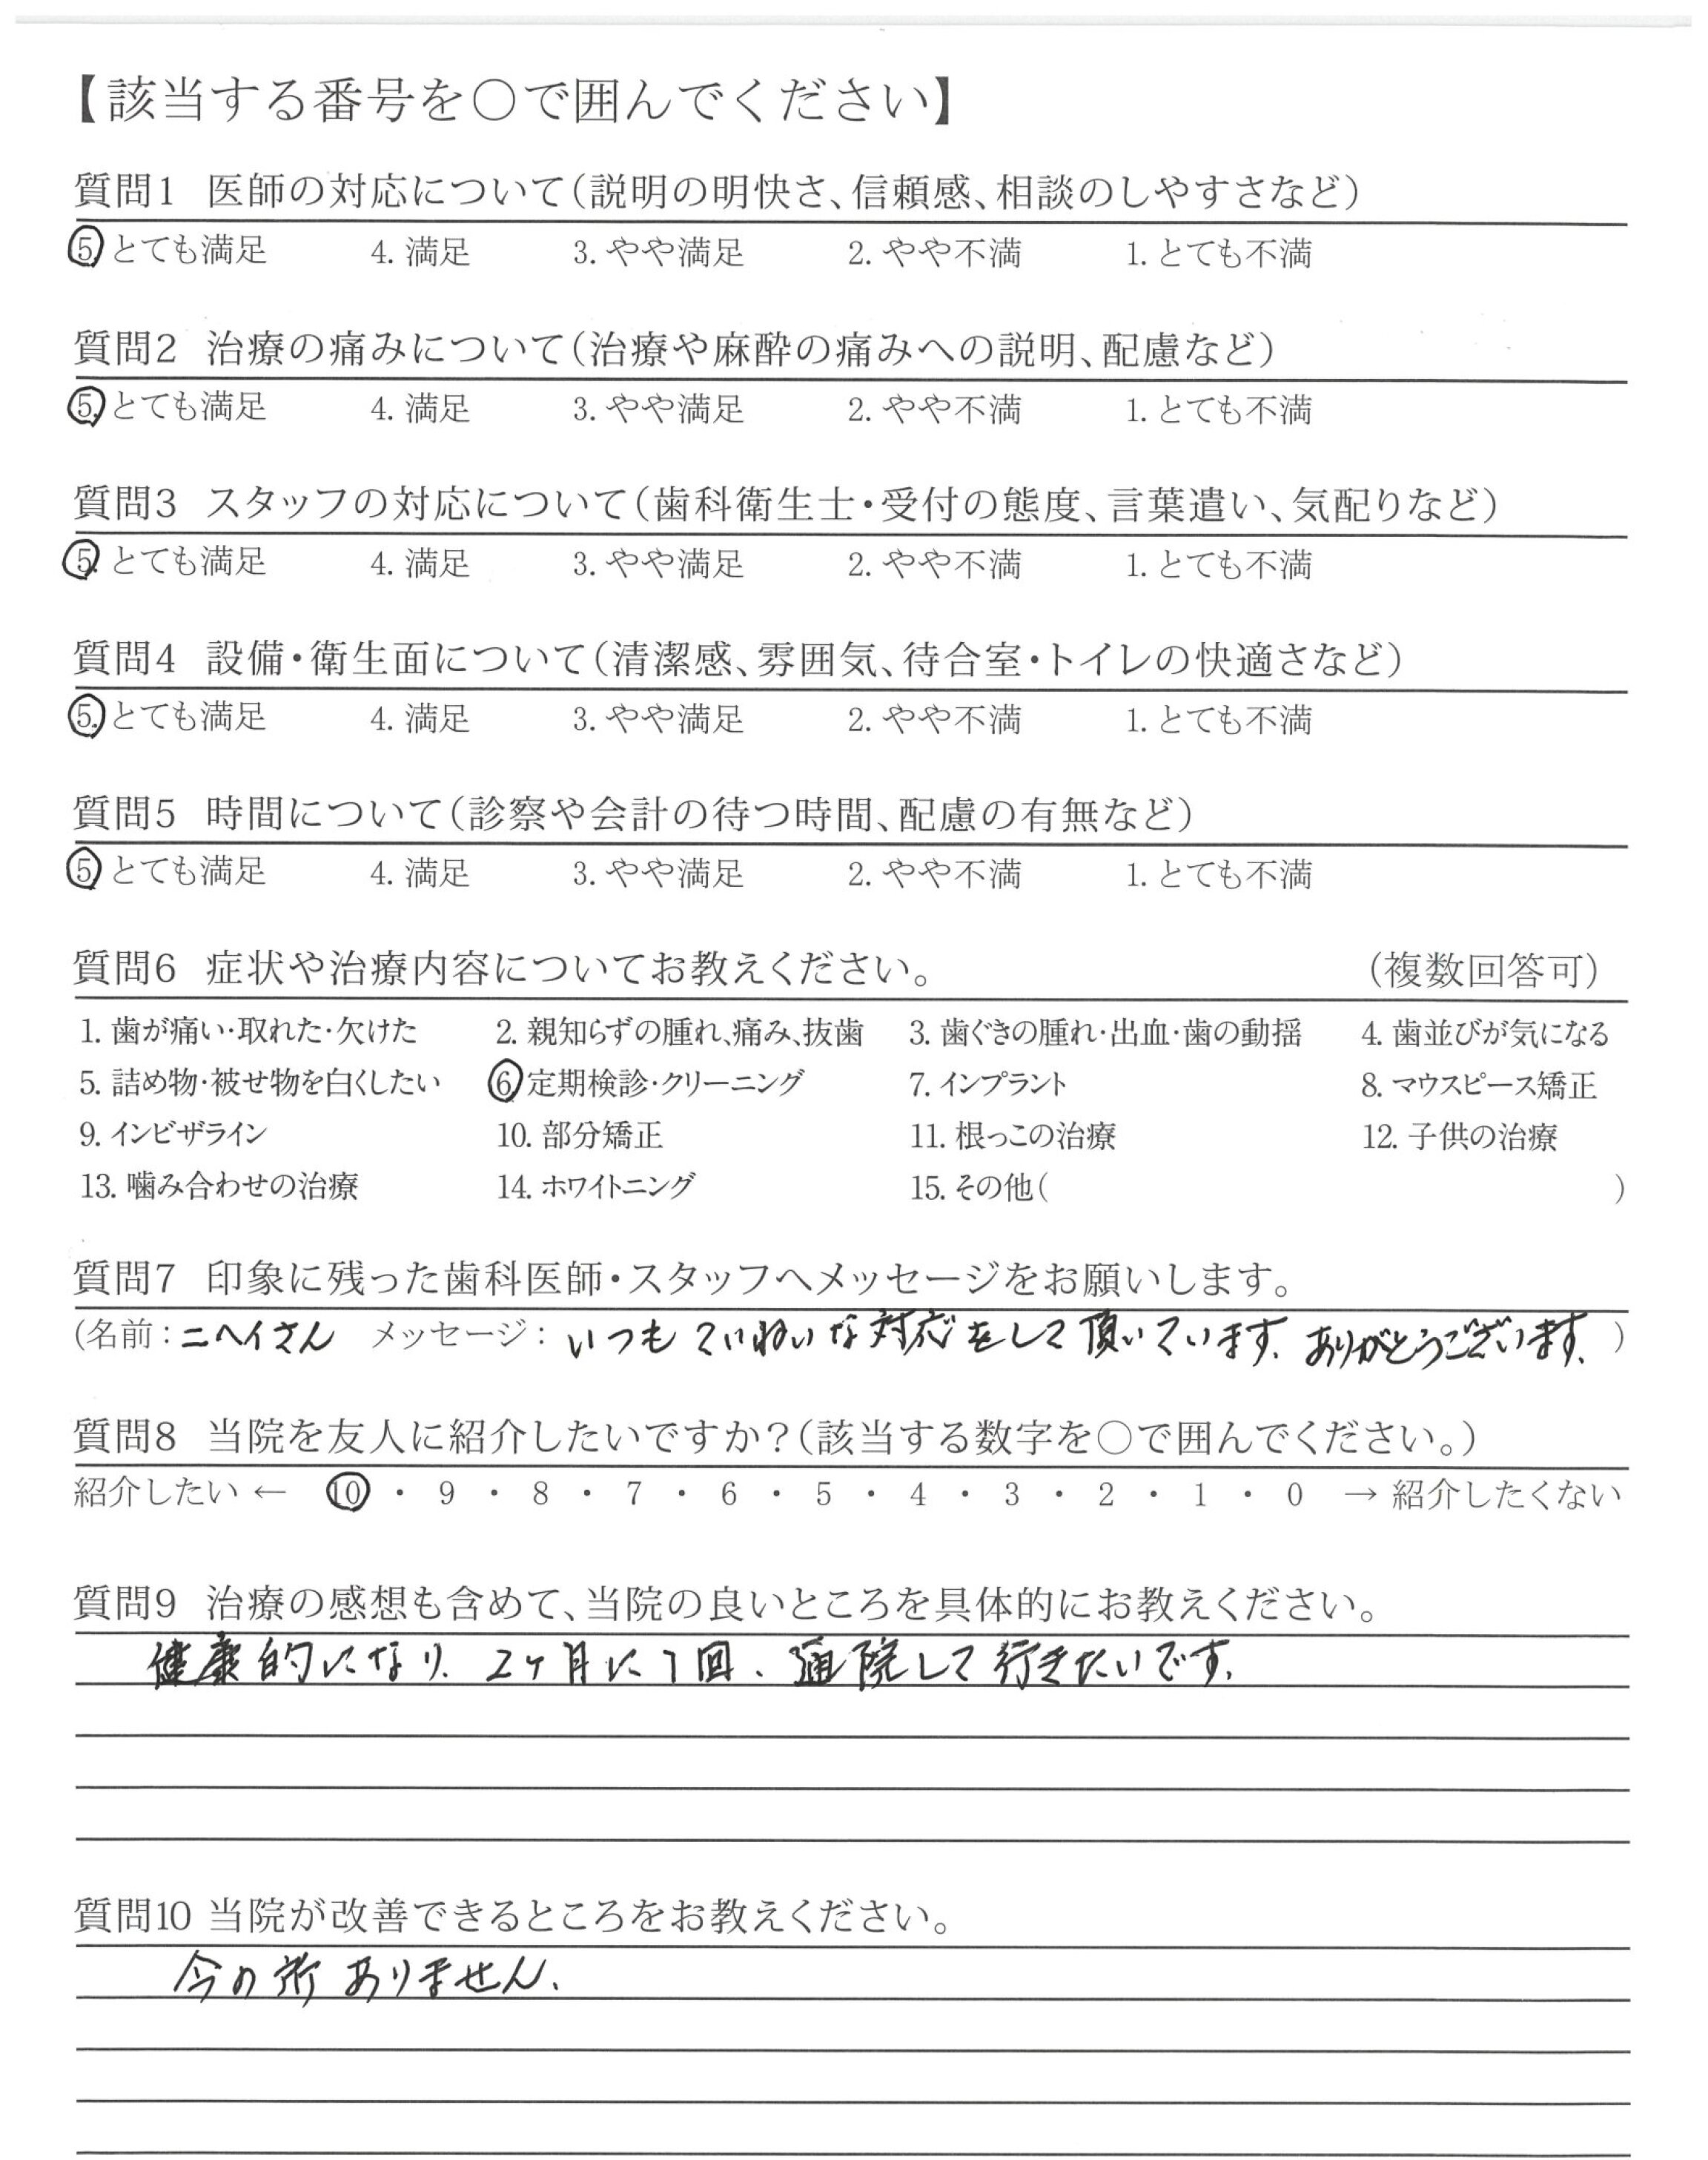 【該当する番号を○で囲んでください】
質問1 医師の対応について(説明の明快さ、信頼感、相談のしやすさなど)
5. とても満足 4. 満足 3. やや満足 2. やや不満 1. とても不満
質問2 治療の痛みについて(治療や麻酔の痛みへの説明、配慮など)
5. とても満足 4. 満足 3. やや満足 2. やや不満 1. とても不満
質問3 スタッフの対応について(歯科衛生士・受付の態度、言葉遣い、気配りなど)
5. とても満足 4. 満足 3. やや満足 2. やや不満 1. とても不満
質問4 設備・衛生面について(清潔感、雰囲気、待合室・トイレの快適さなど)
5. とても満足 4. 満足 3. やや満足 2. やや不満 1. とても不満
質問5 時間について(診察や会計の待つ時間、配慮の有無など)
5. とても満足 4. 満足 3. やや満足 2. やや不満 1. とても不満
質問6 症状や治療内容についてお教えください。 (複数回答可)
1. 歯が痛い・取れた・欠けた 2. 親知らずの腫れ、痛み、抜歯 3. 歯ぐきの腫れ・出血・歯の動揺 4. 歯並びが気になる
5. 詰め物・被せ物を白くしたい 6. 定期検診・クリーニング 7. インプラント 8. マウスピース矯正
9. インビザライン 10. 部分矯正 11. 根っこの治療 12. 子供の治療
13. 噛み合わせの治療 14. ホワイトニング 15. その他( )
質問7 印象に残った歯科医師・スタッフへメッセージをお願いします。
(名前：ニヘイさん メッセージ：いつもていねいな対応をして頂いています。ありがとうございます。)
質問8 当院を友人に紹介したいですか？(該当する数字を○で囲んでください。)
紹介したい ← 10 ・ 9 ・ 8 ・ 7 ・ 6 ・ 5 ・ 4 ・ 3 ・ 2 ・ 1 ・ 0 → 紹介したくない
質問9 治療の感想も含めて、当院の良いところを具体的にお教えください。
健康的になり、2ヶ月に1回、通院して行きたいです。
質問10 当院が改善できるところをお教えください。
今の所ありません。